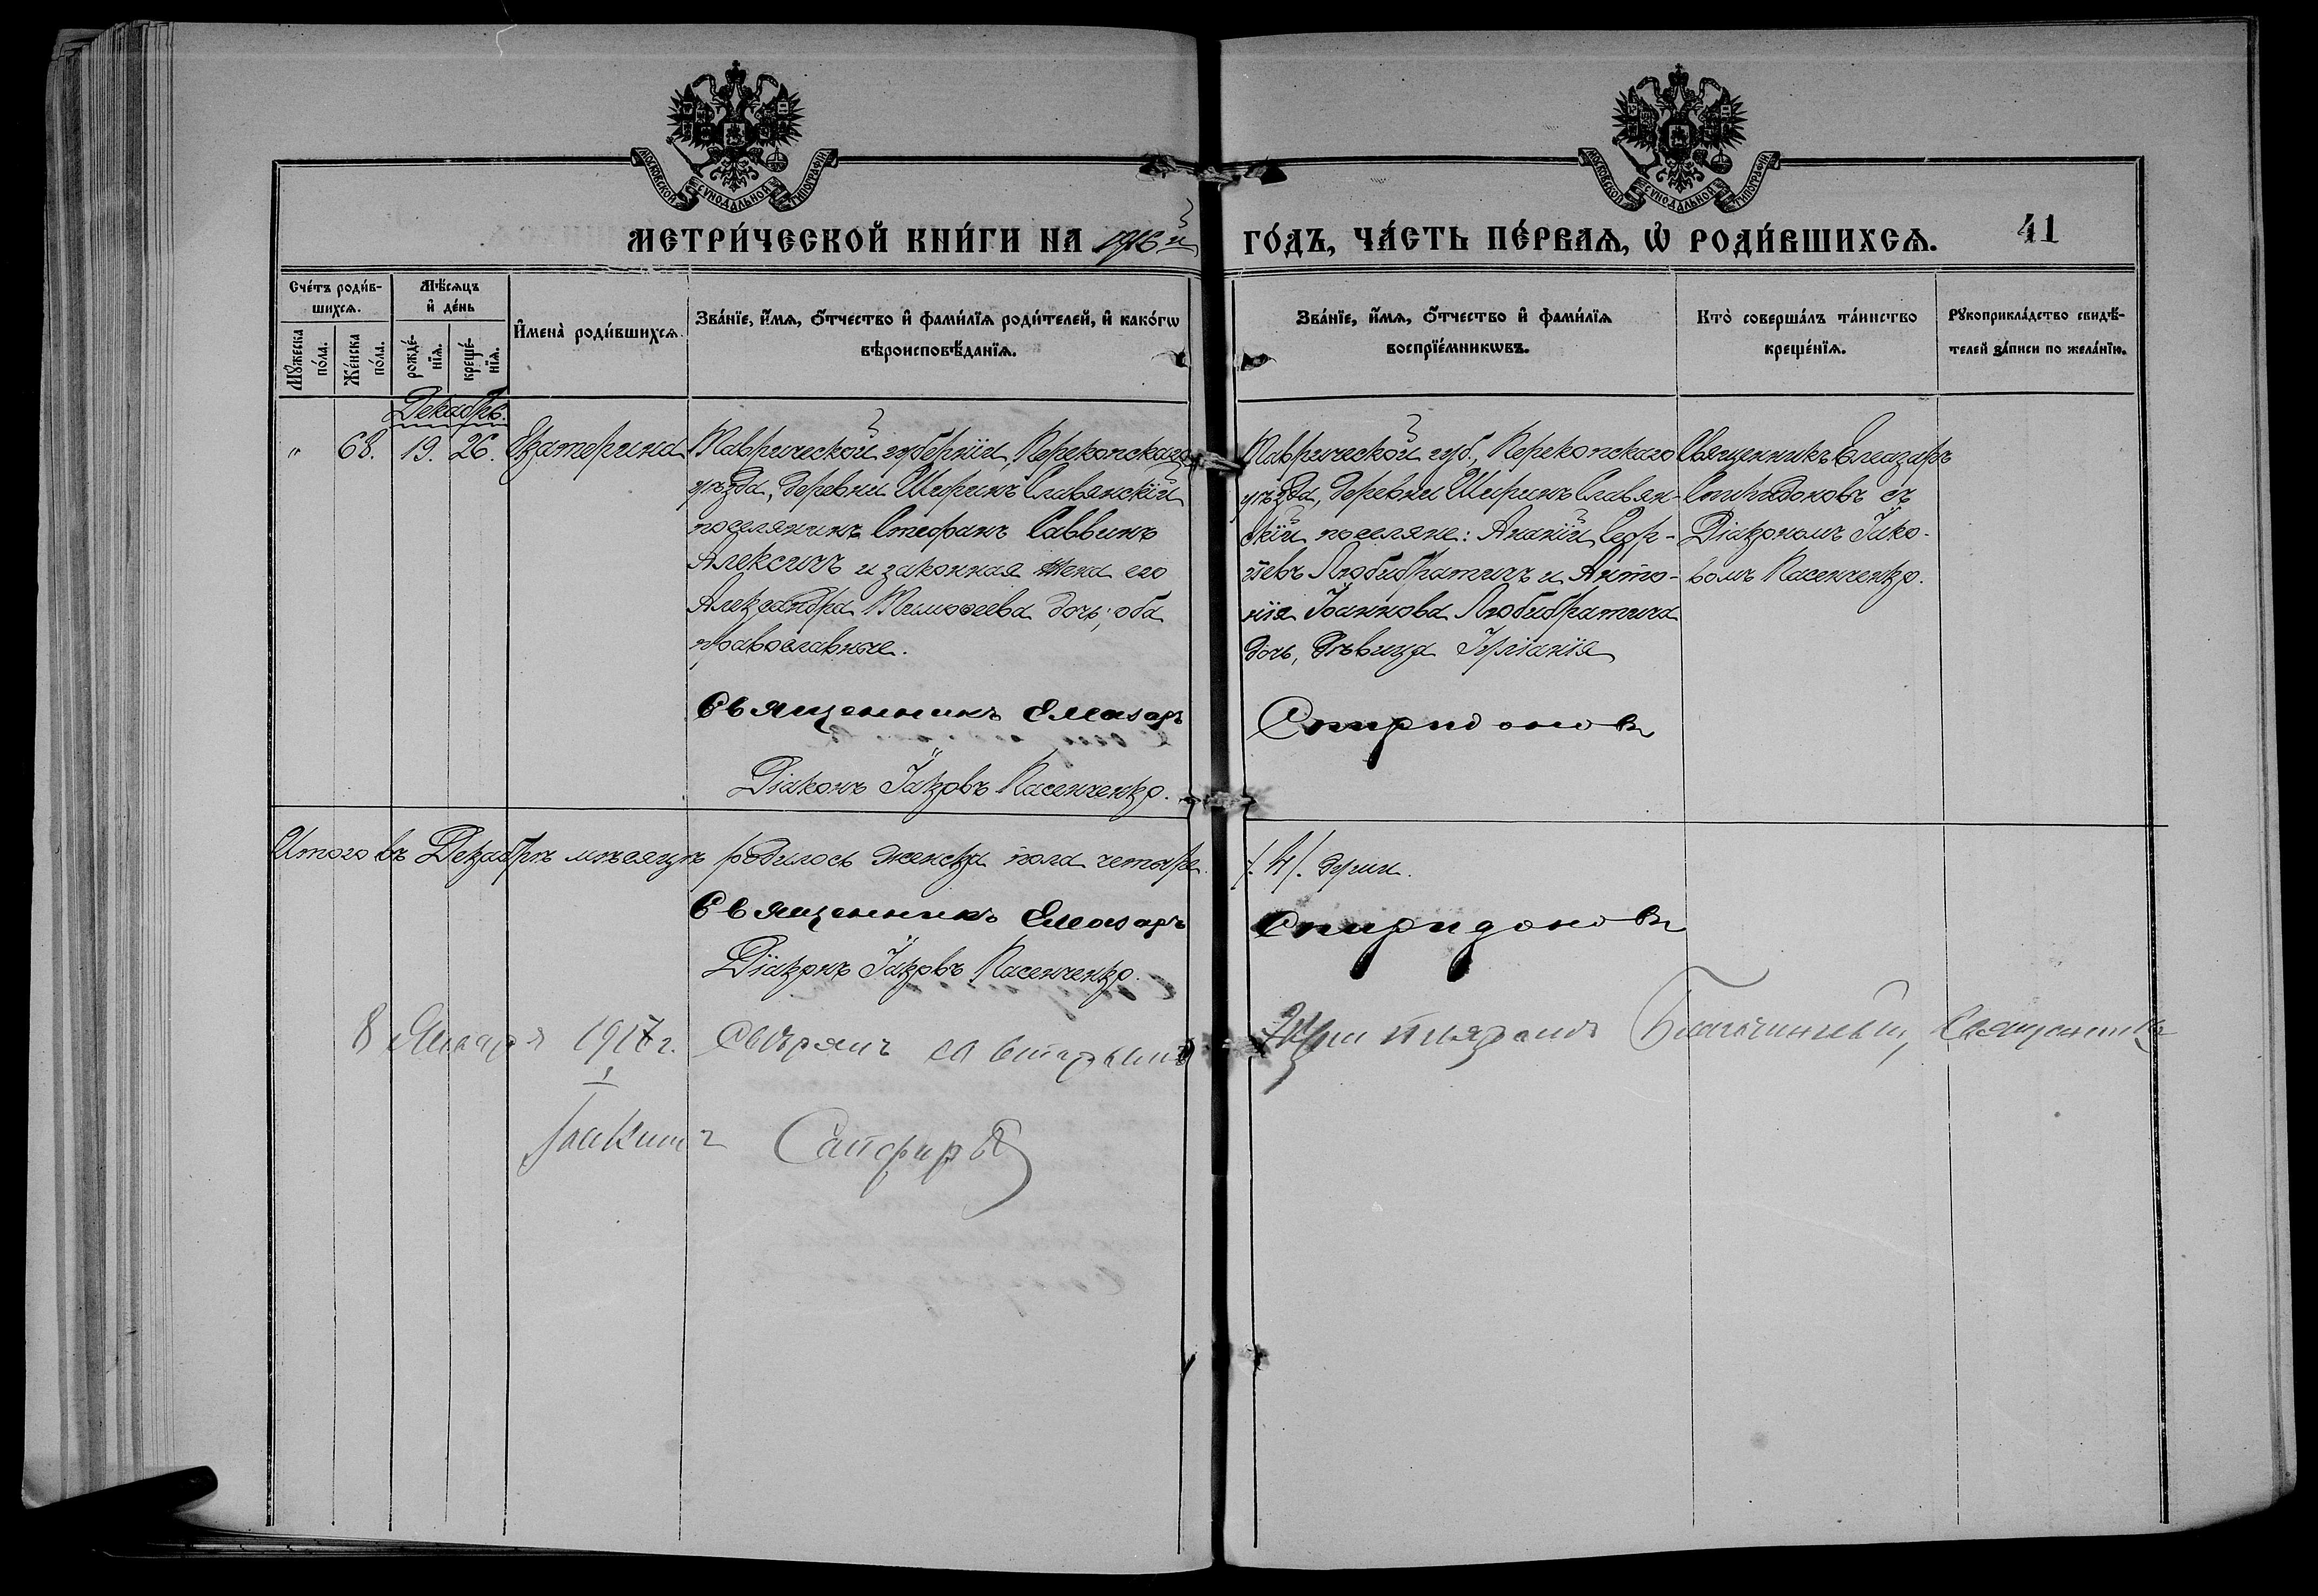 МОСКОВСКОЙ СѴНОДАЛЬНОЙ ТИПОГРАФІИ
МОСКОВСКОЙ СѴНОДАЛЬНОЙ ТИПОГРАФІИ
МЕТРИ́ЧЕСКОЙ КНИ́ГИ НА 1916й ГО́ДЪ, ЧА́СТЬ ПЕ́РВАѦ, Ѽ РОДИ́ВШИХСѦ. 41
Сче́тъ роди́в-
шихсѧ.
Мꙋ́жеска
по́ла.
Же́нска
по́ла.
Мѣ́сѧцъ
и҆ де́нь
рожде́-
нїѧ.
креще́-
нїѧ.
И҆мена̀ роди́вшихсѧ.
Зва́нїе, и҆́мѧ, ѻ҆́тчество и҆ фами́лїѧ роди́телей, и҆ како́гѡ
вѣроисповѣ́данїѧ.
Зва́нїе, и҆́мѧ, ѻ҆́тчество и҆ фами́лїѧ
воспрїе́мникѡвъ.
Кто̀ соверша́лъ та́инство
креще́нїѧ.
Рꙋкоприкла́дство свидѣ́-
телей за́писи по жела́нїю.
Декабрь.
" 68. 19. 26. Екатерина
Таврической губерніи, Перекопскаго
уѣзда, деревни Ширинъ Славянскій
поселянинъ Стефанъ Саввинъ
Алексичъ и законная жена его
Александра Тимоѳеева дочь; оба
православные.
Священникъ Елеазаръ Спиридоновъ
Діаконъ Іаковъ Касенченко.
Таврической губ., Перекопскаго
уѣзда, деревни Ширинъ Славян-
скіи поселяне: Ананій Сер-
гіевъ Любибратичъ и Анто-
нія Іоаннова Любибратича
дочь, дѣвица
Священникъ Елеазаръ
Спиридоновъ съ
Діакономъ Іако-
вомъ Касенченко.
Итого въ Декабрѣ мѣсяцѣ родилось женска пола четыре /4/. души.
Священникъ Елеазаръ Спиридоновъ
Діаконъ Іаковъ Касенченко.
8 Января 1917 г. Свѣрялъ со вторымъ Священникъ
Іоакимъ Сапфировъ